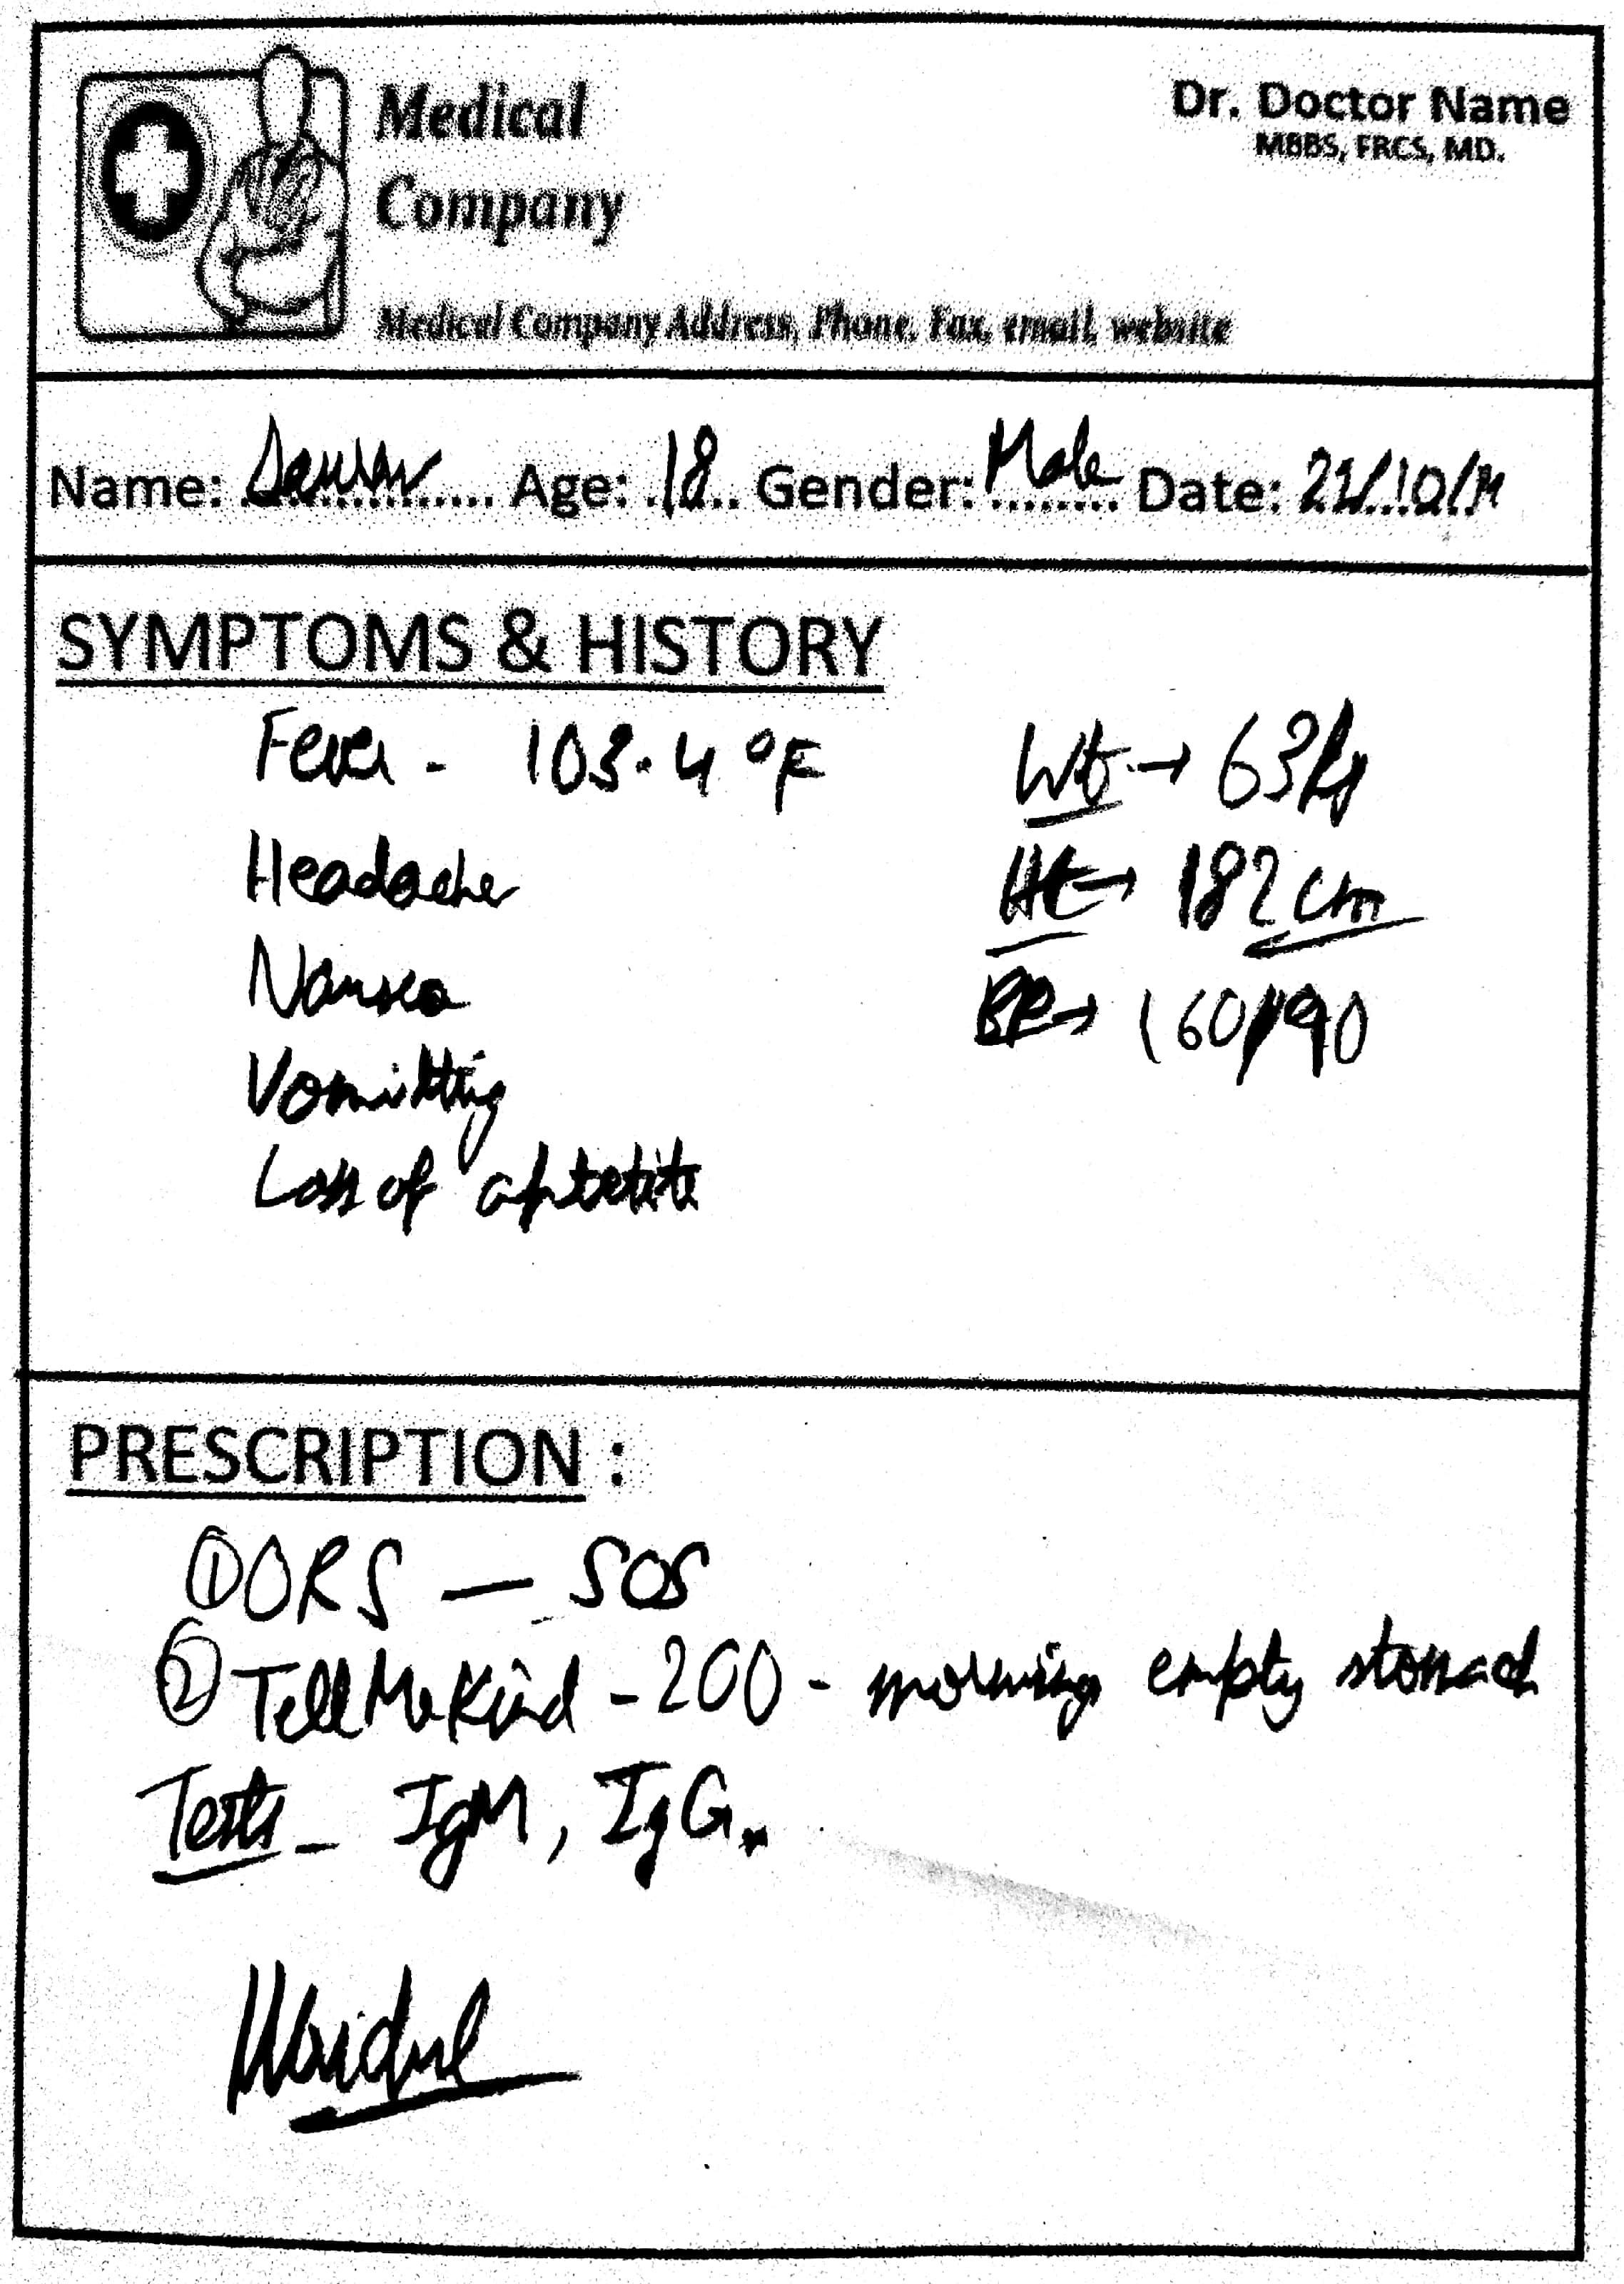 Medical
Company
Dr. Doctor Name
MBBS, FRCS, MD.
Medical Company Address, Phone, Fax, email, website
Name: ............ Age: 18 Gender: Male Date:
SYMPTOMS & HISTORY
Fever - 103.4 °F
Headache
Nausea
Vomitting
Loss of aptetite
Wt. → 63kg
Ht → 182 cm
BP → 160/90
PRESCRIPTION :
① ORS — SOS
② TellMeKind - 200 - morning empty stomach
Tests - IgM, IgG.